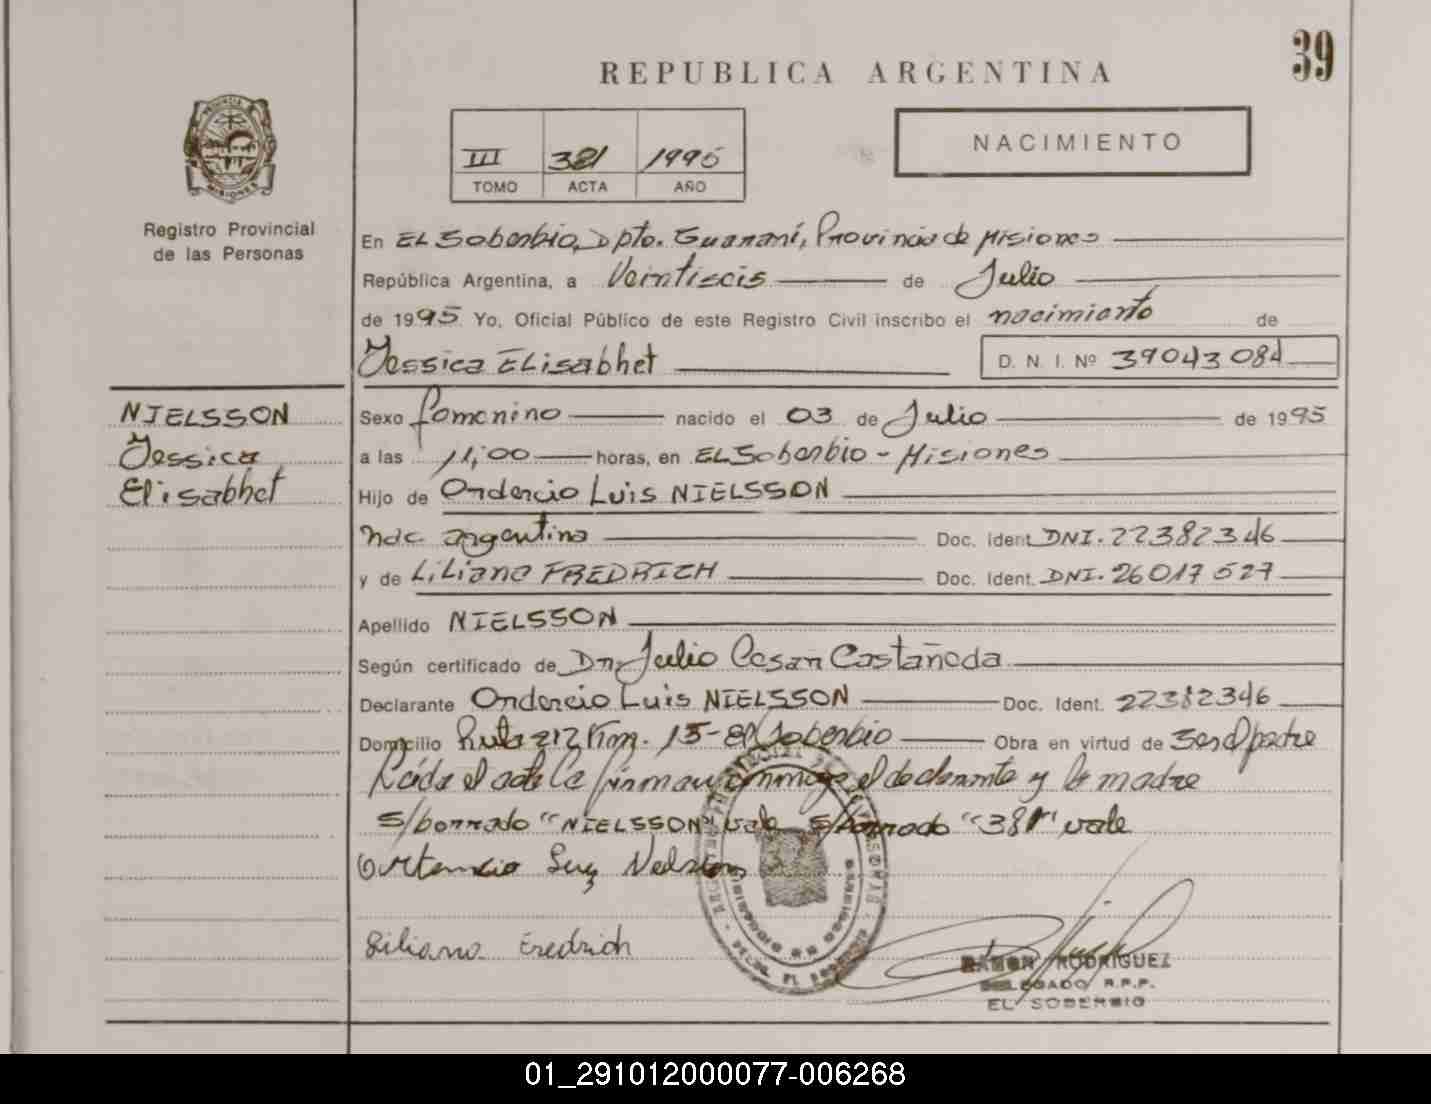 39
REPUBLICA ARGENTINA
III 381 1995
TOMO ACTA AÑO
NACIMIENTO
PROVINCIA DE
MISIONES
Registro Provincial
de las Personas
En EL Soberbio, Dpto. Guaraní, Provincia de Misiones
República Argentina, a Veintiseis de Julio
de 1995 Yo, Oficial Público de este Registro Civil inscribo el nacimiento de
Jessica ELisabhet D. N. I. Nº 39043084
NIELSSON
Jessica
Elisabhet
Sexo femenino nacido el 03 de Julio de 1995
a las 11,00 horas, en EL Soberbio - Misiones
Hijo de Ordercio Luis NIELSSON
nac. argentina Doc. Ident. DNI. 22382346
y de LiLiana FREDRICH Doc. Ident. DNI. 26017527
Apellido NIELSSON
Según certificado de Dr. Julio Cesar Castañeda
Declarante Ordercio Luis NIELSSON Doc. Ident. 22382346
Domicilio Ruta 212 Km. 15 - El Soberbio Obra en virtud de ser el padre
Leída el acta la firman conmigo el declarante y la madre
S/borrado "NIELSSON" vale S/borrado "381" vale
Ortencio Luiz Nelsson
Liliana Fredrich
RAMON RODRIGUEZ
DELEGADO R.P.P.
EL SOBERBIO
01_291012000077-006268